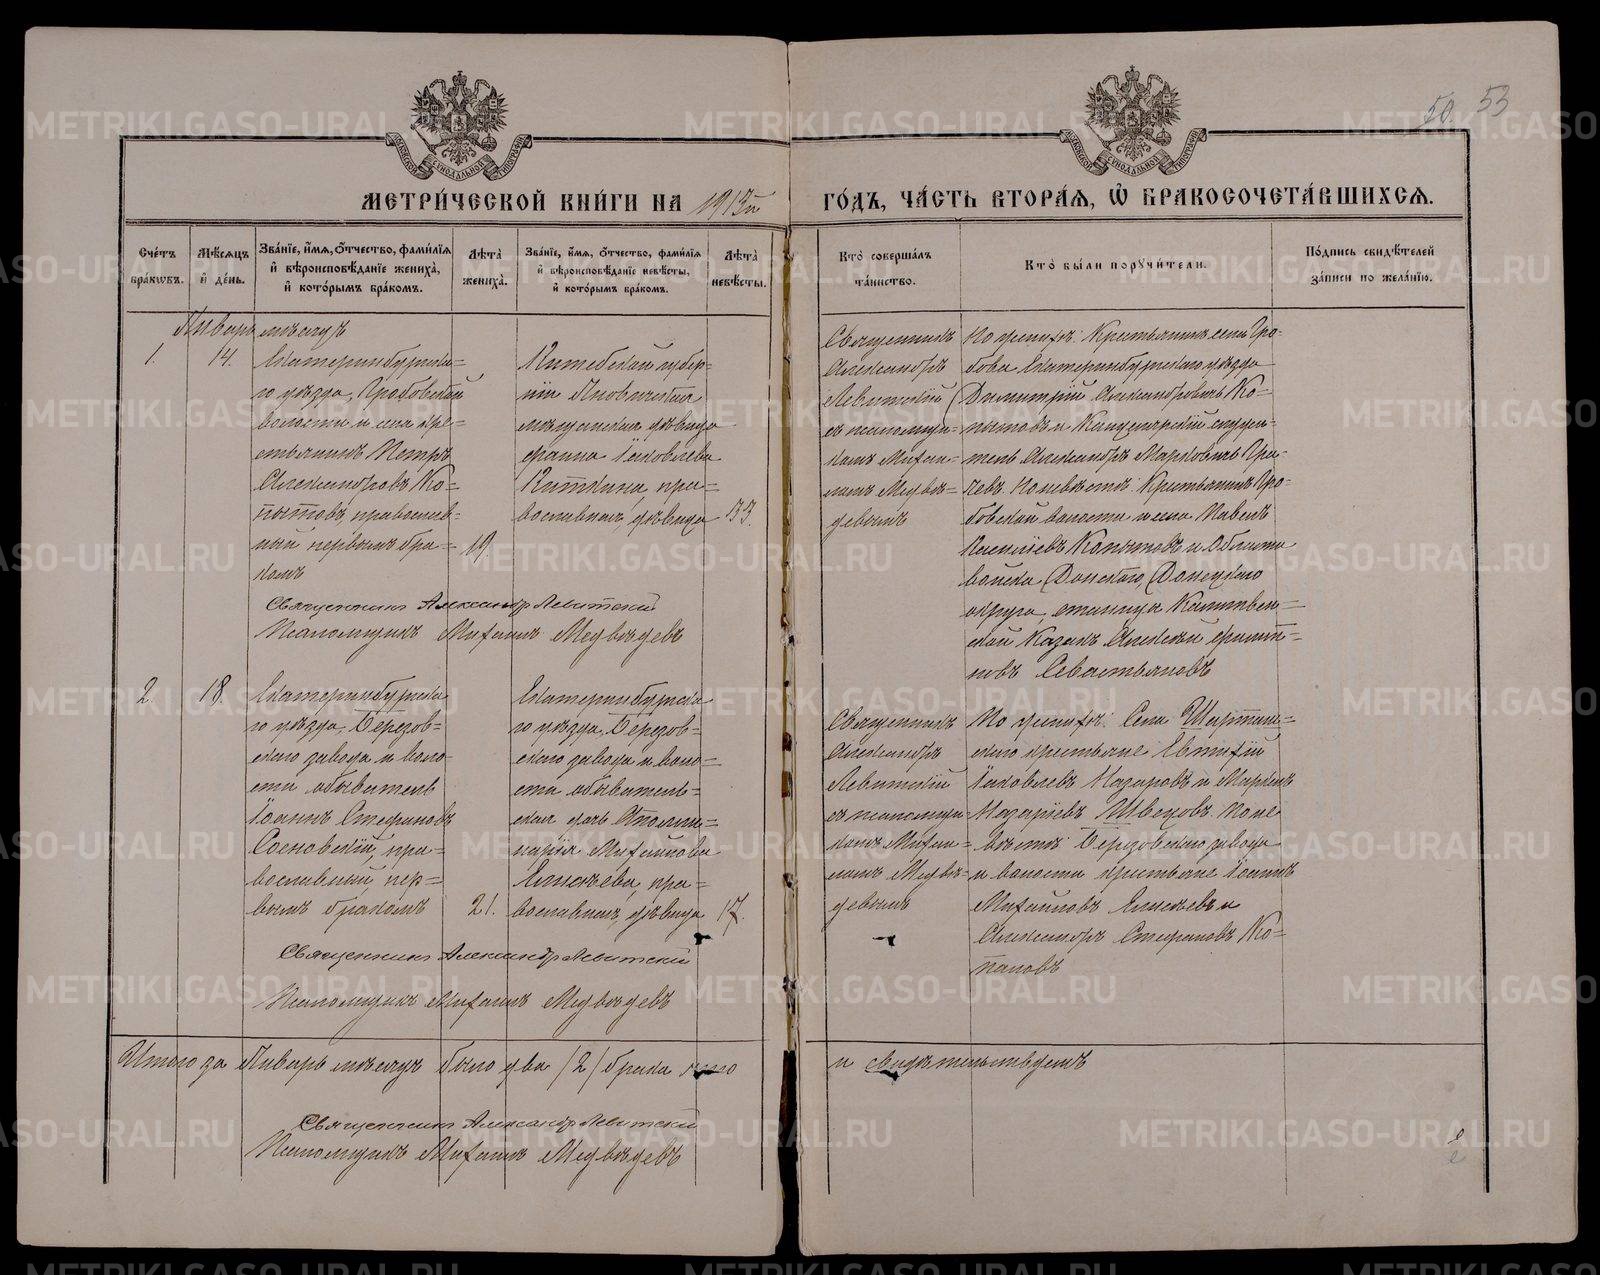 50. 53
МЕТРИ́ЧЕСКОЙ КНИ́ГИ НА 1913й ГО́ДЪ, ЧА́СТЬ ВТОРА́Ѧ, Ѡ҆ БРАКОСОЧЕТА́ВШИХСѦ.
Сче́тъ бра́кѡвъ.
Мѣ́сѧцъ и҆ де́нь.
Зва́нїе, и҆́мѧ, о҆́тчество, фами́лїѧ и҆ вѣроисповѣ́данїе жениха̀, и҆ кото́рымъ бра́комъ.
Лѣ́та жениха̀.
Зва́нїе, и҆́мѧ, о҆́тчество, фами́лїѧ и҆ вѣроисповѣ́данїе невѣ́сты, и҆ кото́рымъ бра́комъ.
Лѣ́та невѣ́сты.
Кто̀ соверша́лъ та́инство.
Кто̀ бы́ли поручи́тели.
По́дпись свидѣ́телей за́писи по жела́нїю.
Январь мѣсяцъ
1.
14.
Екатеринбургска-
го уѣзда, Гробовской
волости и села кре-
стьянинъ Петръ
Александровъ Ко-
пытовъ, православ-
ный первымъ бра-
комъ
19.
Витебской губер-
ніи
мѣщанская дѣвица
Іаковлева
пра-
вославная, дѣвица
Священникъ
Александръ
Левитскій
съ псаломщи-
комъ Михаи-
ломъ Медвѣ-
девымъ
По женихѣ: Крестьянинъ села Гро-
бова Екатеринбургскаго уѣзда
Димитрій Александровичъ Ко-
пытовъ и
Александръ Марковичъ
По невѣстѣ: Крестьянинъ Гро-
бовской волости и села Павелъ
Василіевъ Копытовъ и Области
войска Донскаго, Донецкаго
округа, станица Калитвен-
ской Казакъ Алексѣй Филип-
повъ Севастьяновъ
Священникъ Александръ Левитский
Псаломщикъ Михаилъ Медвѣдевъ
2.
18.
Екатеринбургска
го уѣзда, Березов-
скаго завода и воло-
сти обыватель
Іоаннъ Стефановъ
Сосновскій, пра-
вославный, пер-
вымъ бракомъ
21.
Екатеринбургска
го уѣзда, Березов-
скаго завода и воло-
сти обыватель-
ская дочь Аполли-
нарія Михайлова
Елисѣева, пра-
вославная, дѣвица
17.
Священникъ
Александръ
Левитскій
съ псаломщи
комъ Михаи-
ломъ Медвѣ-
девымъ
По женихѣ: Села Шарташ-
скаго крестьяне Евтихій
Іаковлевъ Назаровъ и Маркелъ
Назаріевъ Швецовъ. По не
вѣстѣ: Березовскаго завода
и волости крестьяне Іоаннъ
Михайловъ Елисѣевъ и
Александръ Стефановъ Ко-
паловъ
Священникъ Александръ Левитский
Псаломщикъ Михаилъ Медвѣдевъ
Итого за Январь мѣсяцъ было два /2/ брака
и свидѣтельствуемъ
Священникъ Александръ Левитский
Псаломщикъ Михаилъ Медвѣдевъ
METRIKI.GASO-URAL.RU